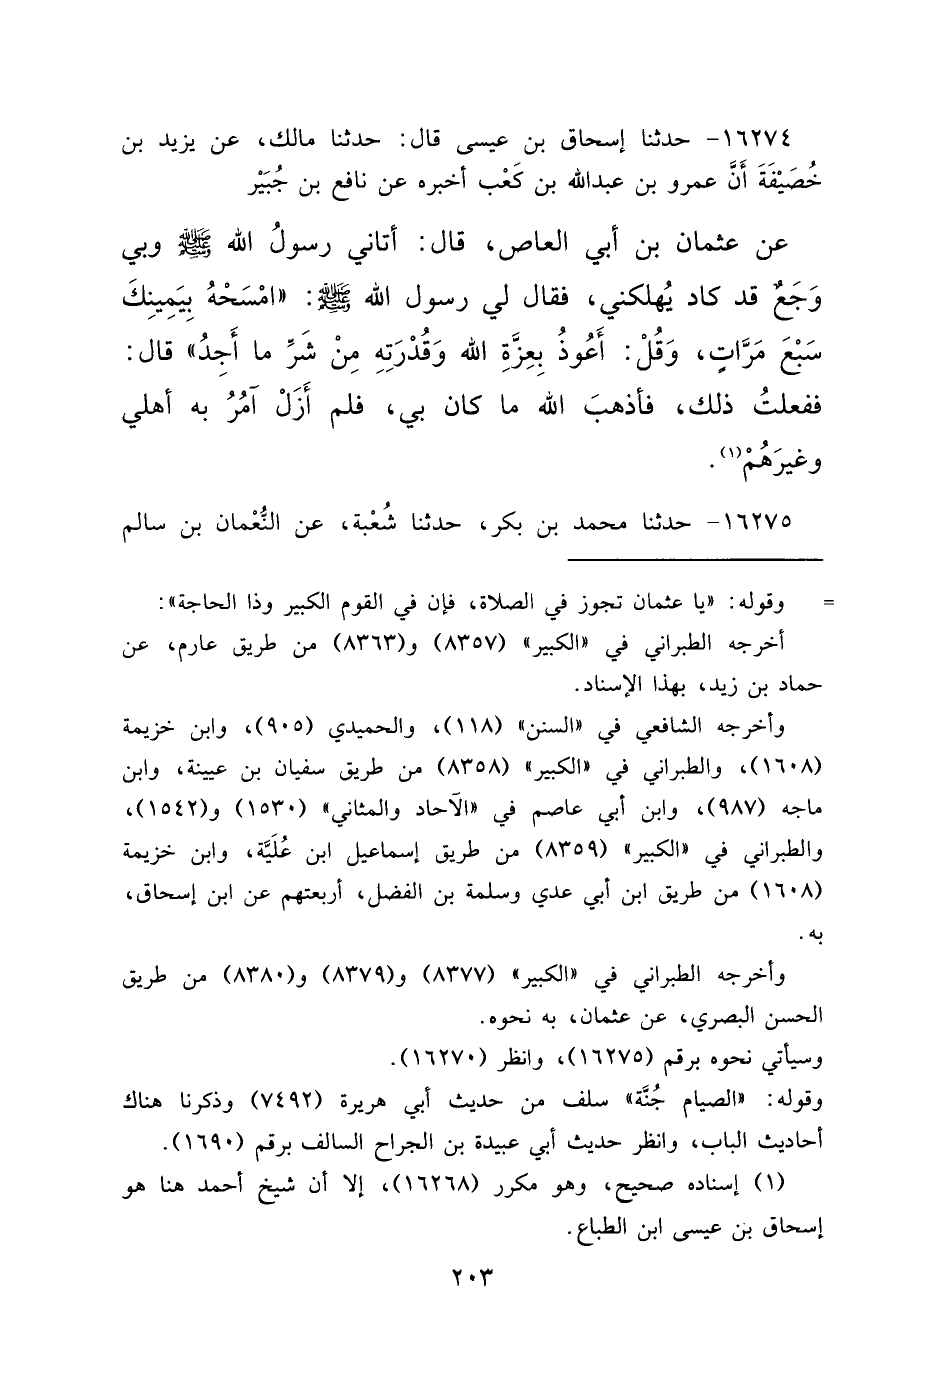 ١٦٢٧٤- حدثنا إسحاق بن عيسى قال: حدثنا مالك، عن يزيد بن
خُصَيْفَةَ أَنَّ عمرو بن عبدالله بن كَعْب أخبره عن نافع بن جُبَيْر
عن عثمان بن أبي العاص، قال: أتاني رسولُ الله ﷺ وبي
وَجَعٌ قد كاد يُهلكني، فقال لي رسول الله ﷺ: «امْسَحْهُ بِيَمِينِكَ
سَبْعَ مَرَّاتٍ، وَقُلْ: أَعُوذُ بِعِزَّةِ الله وَقُدْرَتِهِ مِنْ شَرِّ ما أَجِدُ» قال:
ففعلتُ ذلك، فأذهبَ الله ما كان بي، فلم أَزَلْ آمُرُ به أهلي
وغيرَهُمْ(١).
١٦٢٧٥- حدثنا محمد بن بكر، حدثنا شُعْبة، عن النُّعْمان بن سالم
= وقوله: «يا عثمان تجوز في الصلاة، فإن في القوم الكبير وذا الحاجة»:
أخرجه الطبراني في «الكبير» (٨٣٥٧) و(٨٣٦٣) من طريق عارم، عن
حماد بن زيد، بهذا الإسناد.
وأخرجه الشافعي في «السنن» (١١٨)، والحميدي (٩٠٥)، وابن خزيمة
(١٦٠٨)، والطبراني في «الكبير» (٨٣٥٨) من طريق سفيان بن عيينة، وابن
ماجه (٩٨٧)، وابن أبي عاصم في «الآحاد والمثاني» (١٥٣٠) و(١٥٤٢)،
والطبراني في «الكبير» (٨٣٥٩) من طريق إسماعيل ابن عُلَيَّة، وابن خزيمة
(١٦٠٨) من طريق ابن أبي عدي وسلمة بن الفضل، أربعتهم عن ابن إسحاق،
به.
وأخرجه الطبراني في «الكبير» (٨٣٧٧) و(٨٣٧٩) و(٨٣٨٠) من طريق
الحسن البصري، عن عثمان، به نحوه.
وسيأتي نحوه برقم (١٦٢٧٥)، وانظر (١٦٢٧٠).
وقوله: «الصيام جُنَّة» سلف من حديث أبي هريرة (٧٤٩٢) وذكرنا هناك
أحاديث الباب، وانظر حديث أبي عبيدة بن الجراح السالف برقم (١٦٩٠).
(١) إسناده صحيح، وهو مكرر (١٦٢٦٨)، إلا أن شيخ أحمد هنا هو
إسحاق بن عيسى ابن الطباع.
٢٠٣